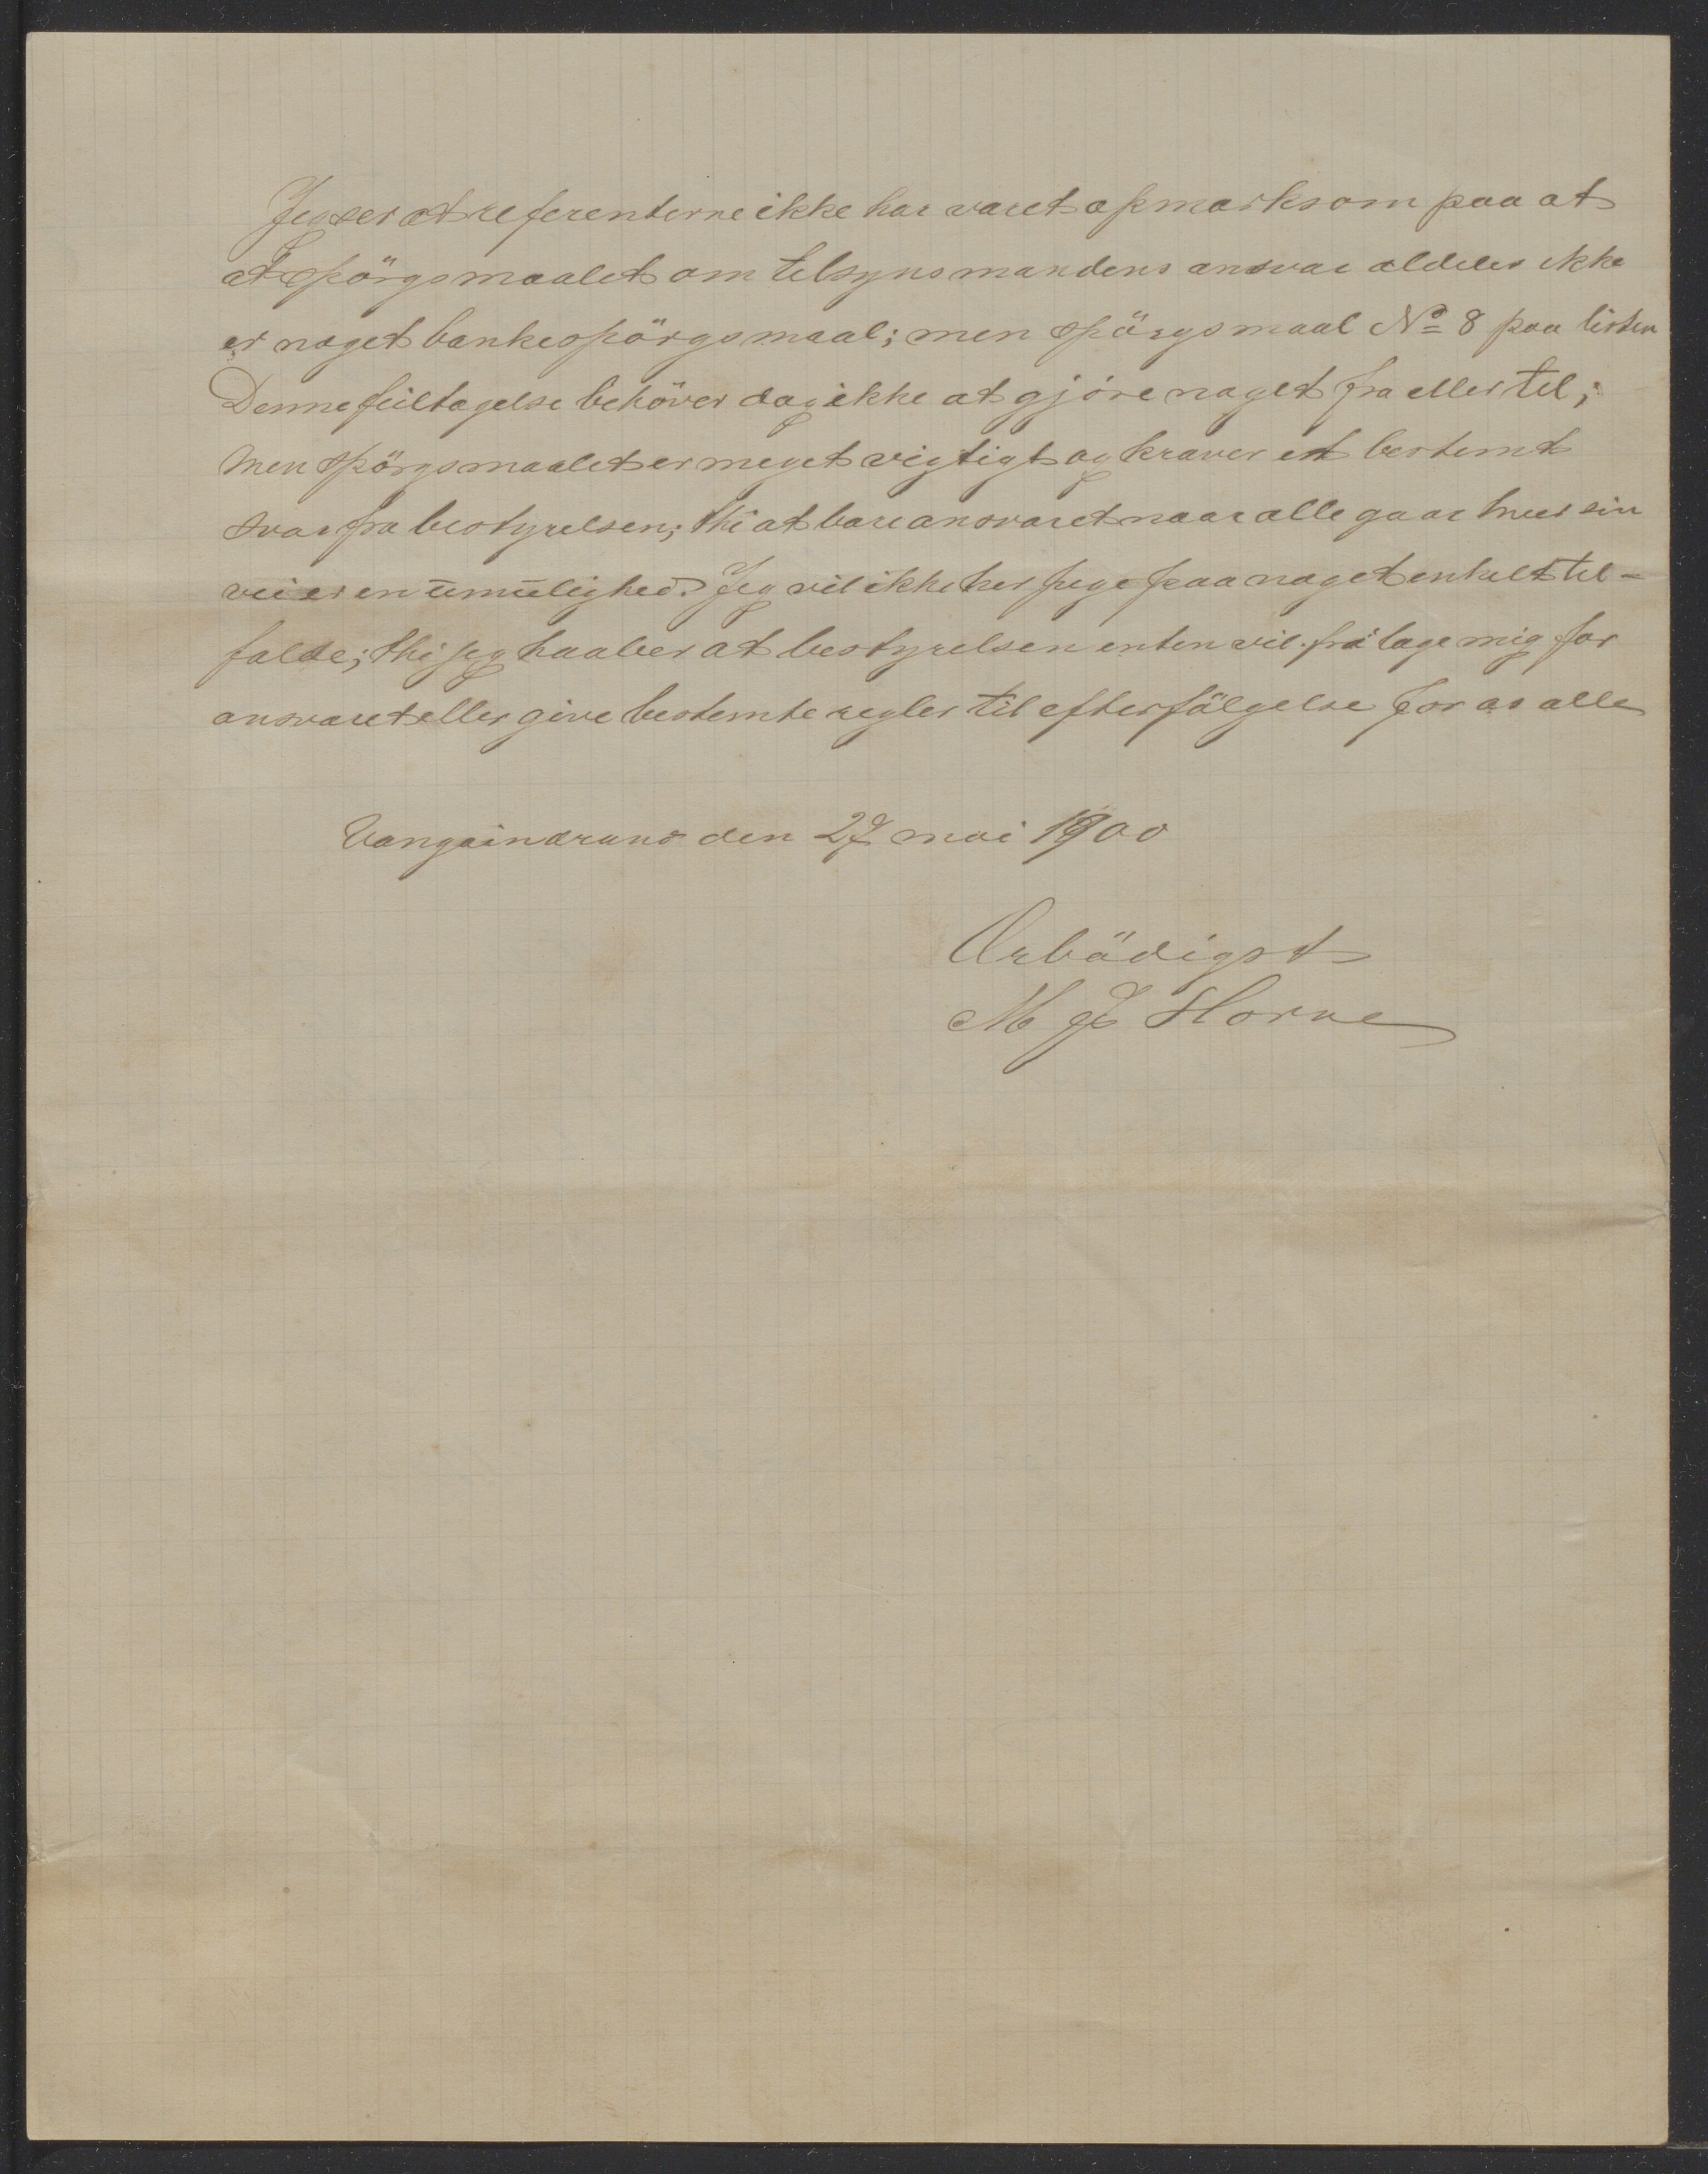 Jeg ser at referenterne ikke har været opmærksom paa at
at spörgsmaalet om tilsynsmandens ansvar aldeles ikke
er noget bankespörgsmaal; men spörgsmaal No 8 paa listen
Denne feiltagelse behöver dog ikke at gjöre noget fra eller til;
men spörgsmaalet er meget vigtigt og kræver et bestemt
svar fra bestyrelsen; thi at bære ansvaret naar alle gaar hver sin
vei er en umulighed. Jeg vil ikke her pege paa noget enkelt til-
fælde; thi jeg haaber at bestyrelsen enten vil fratage mig for
ansvaret eller give bestemte regler til efterfölgelse for os alle
Vangaindrano den 27 mai 1900
Ærbödigst
M J Horne